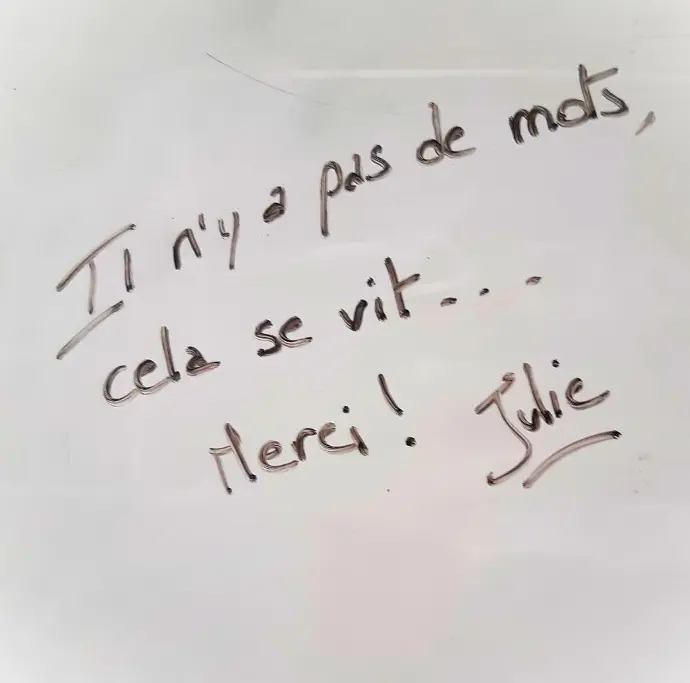 Il n'y a pas de mots,
cela se vit...
Merci! Julie